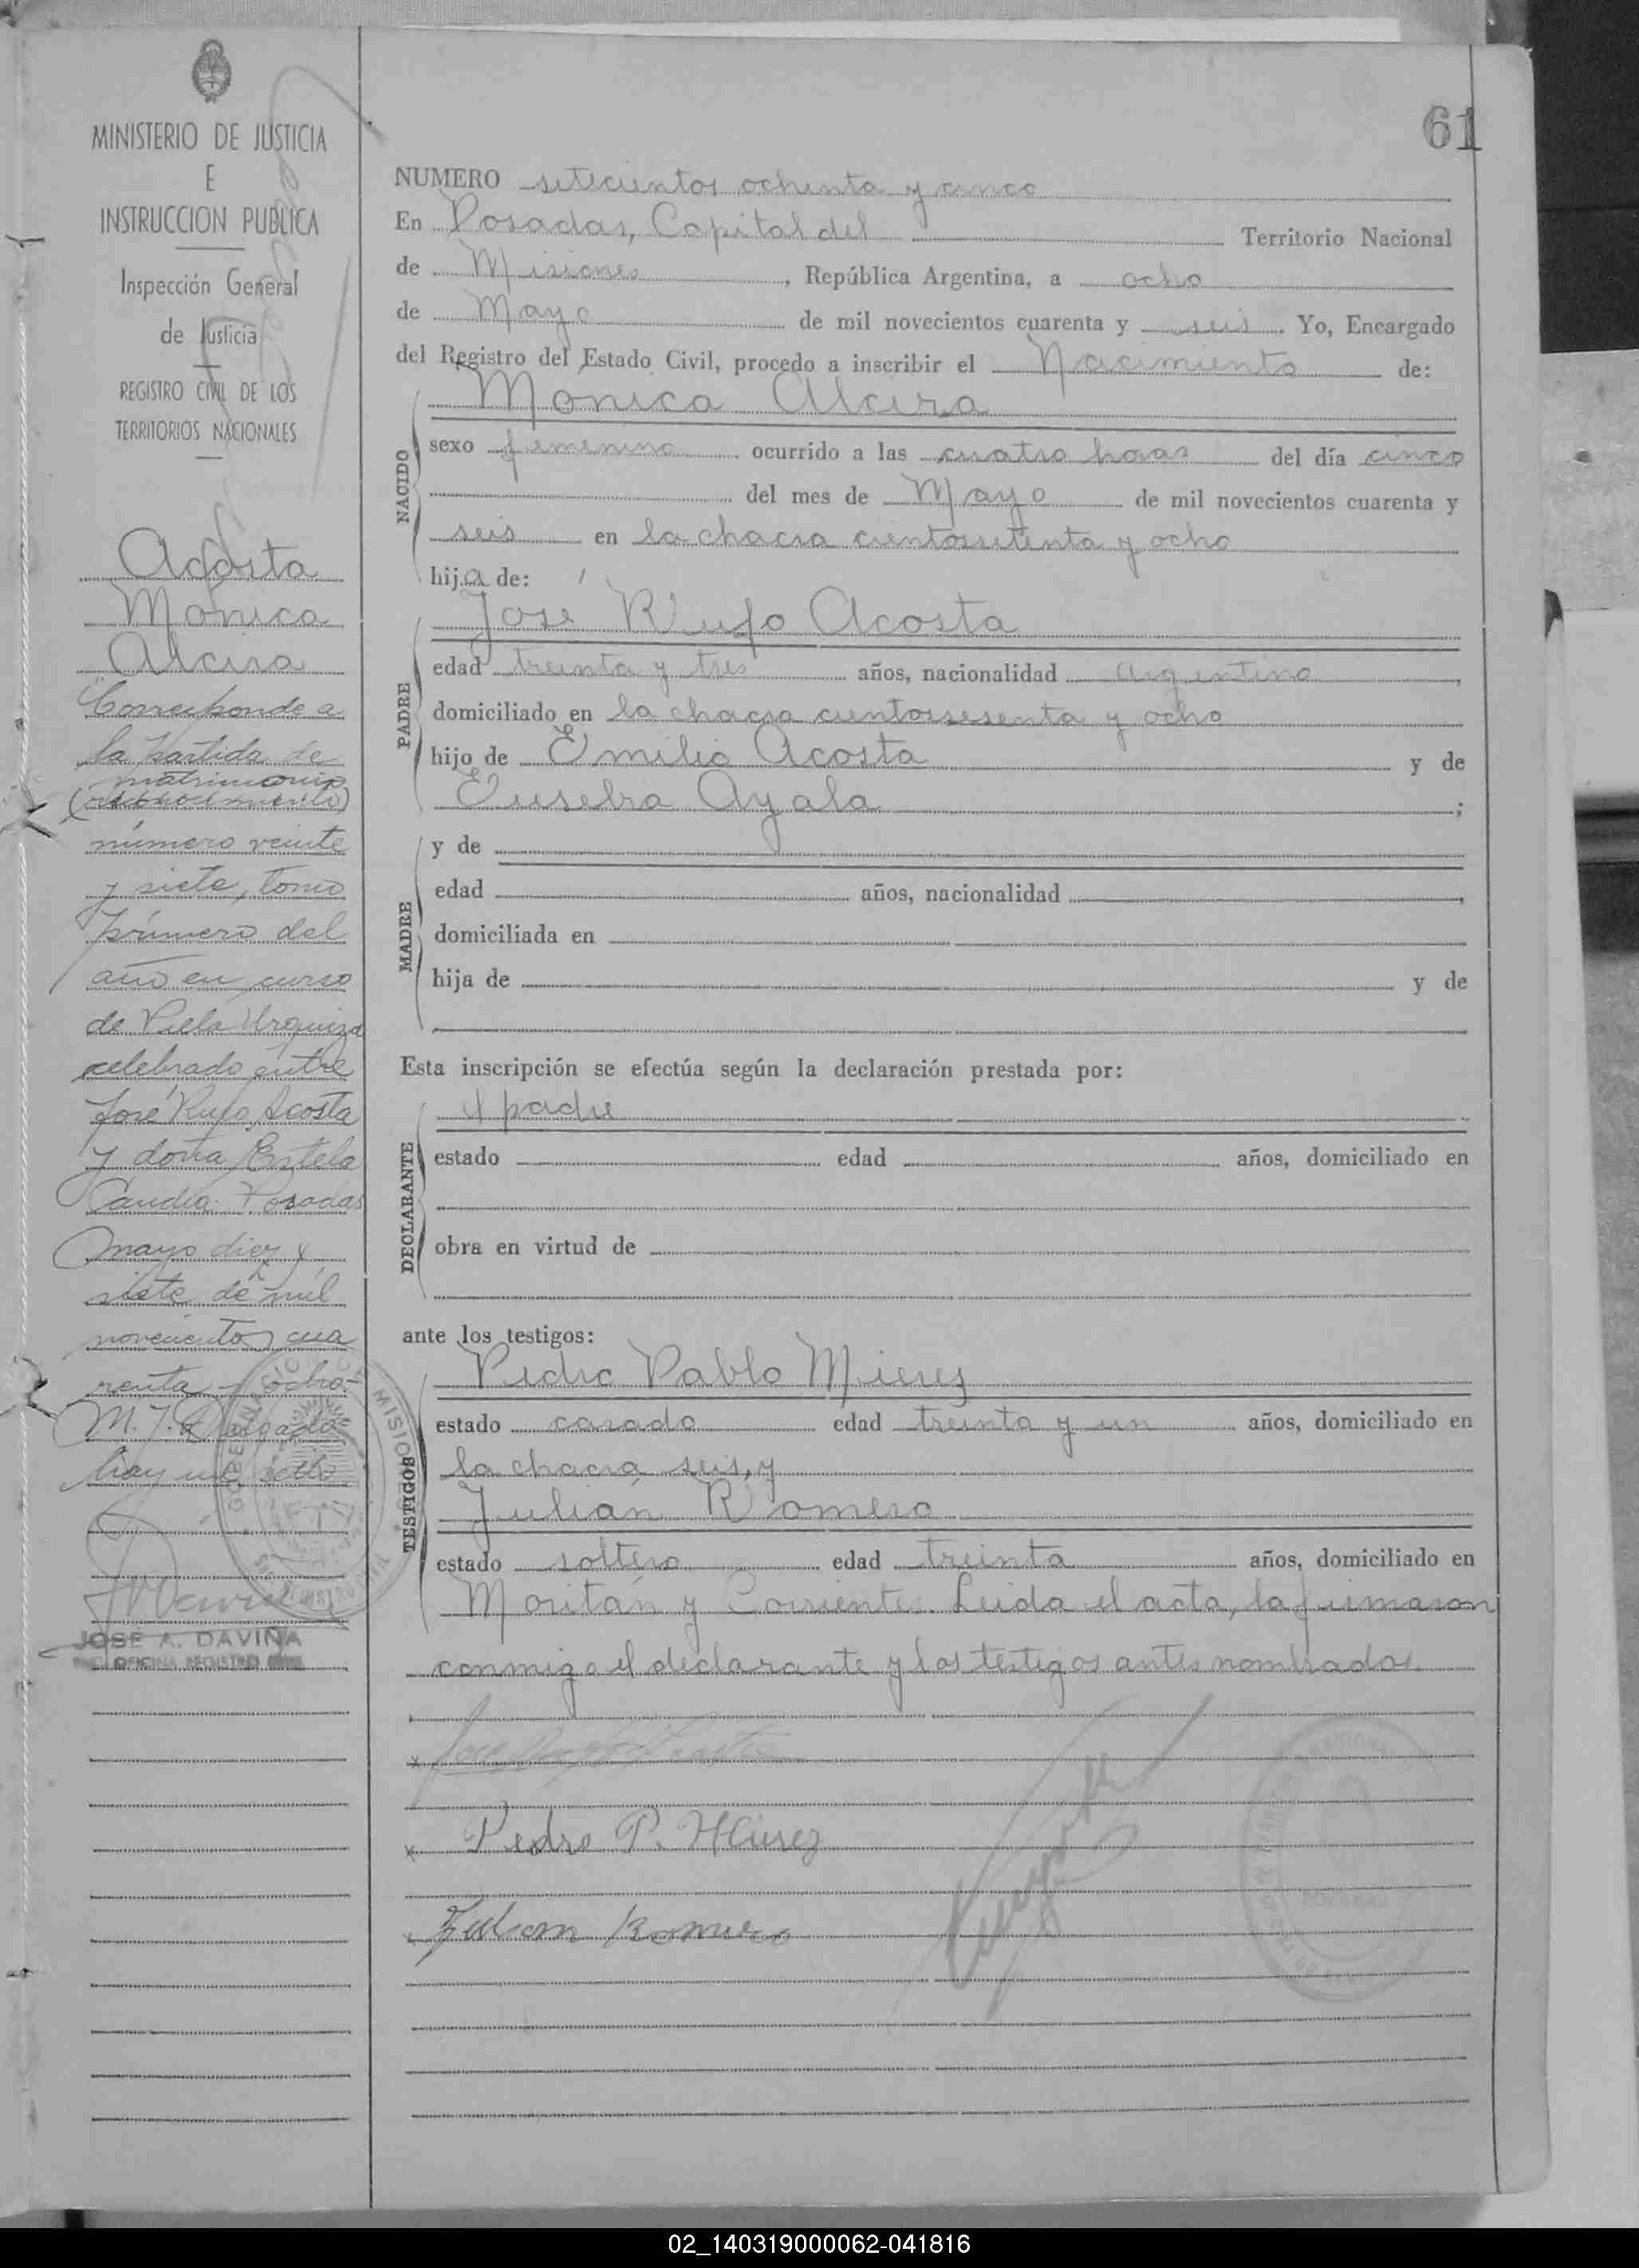 61
MINISTERIO DE JUSTICIA
E
INSTRUCCION PUBLICA
Inspección General
de Justicia
REGISTRO CIVIL DE LOS
TERRITORIOS NACIONALES
Acosta
Monica
Alcira
Corresponde a
la partida de
matrimonio
(reconocimiento)
número veinte
y siete, tomo
primero del
año en curso
de Villa Urquiza
celebrado entre
José Rufo Acosta
y doña Estela
Candia. Posadas
mayo diez y
siete de mil
novecientos cua
renta y ocho.
M. J. Delgado
hay un sello
JOSÉ A. DAVIÑA
OFICINA REGISTRO CIVIL
NUMERO setecientos ochenta y cinco
En Posadas, Capital del Territorio Nacional
de Misiones, República Argentina, a ocho
de Mayo de mil novecientos cuarenta y seis. Yo, Encargado
del Registro del Estado Civil, procedo a inscribir el Nacimiento de:
Monica Alcira
NACIDO
sexo femenino ocurrido a las cuatro horas del día cinco
del mes de Mayo de mil novecientos cuarenta y
seis en la chacra cientosetenta y ocho
hija de:
José Rufo Acosta
PADRE
edad treinta y tres años, nacionalidad argentino,
domiciliado en la chacra cientosesenta y ocho
hijo de Emilio Acosta y de
Eusebia Ayala;
MADRE
y de
edad años, nacionalidad,
domiciliada en
hija de y de
Esta inscripción se efectúa según la declaración prestada por:
el padre
DECLARANTE
estado edad años, domiciliado en
obra en virtud de
ante los testigos:
Pedro Pablo Mierez
TESTIGOS
estado casado edad treinta y un años, domiciliado en
la chacra seis, y
Julián Romero
estado soltero edad treinta años, domiciliado en
Moritán y Corrientes. Leida el acta, la firmaron
conmigo el declarante y los testigos antes nombrados.
x
x Pedro P. Mierez
x Julian Romero
02_140319000062-041816